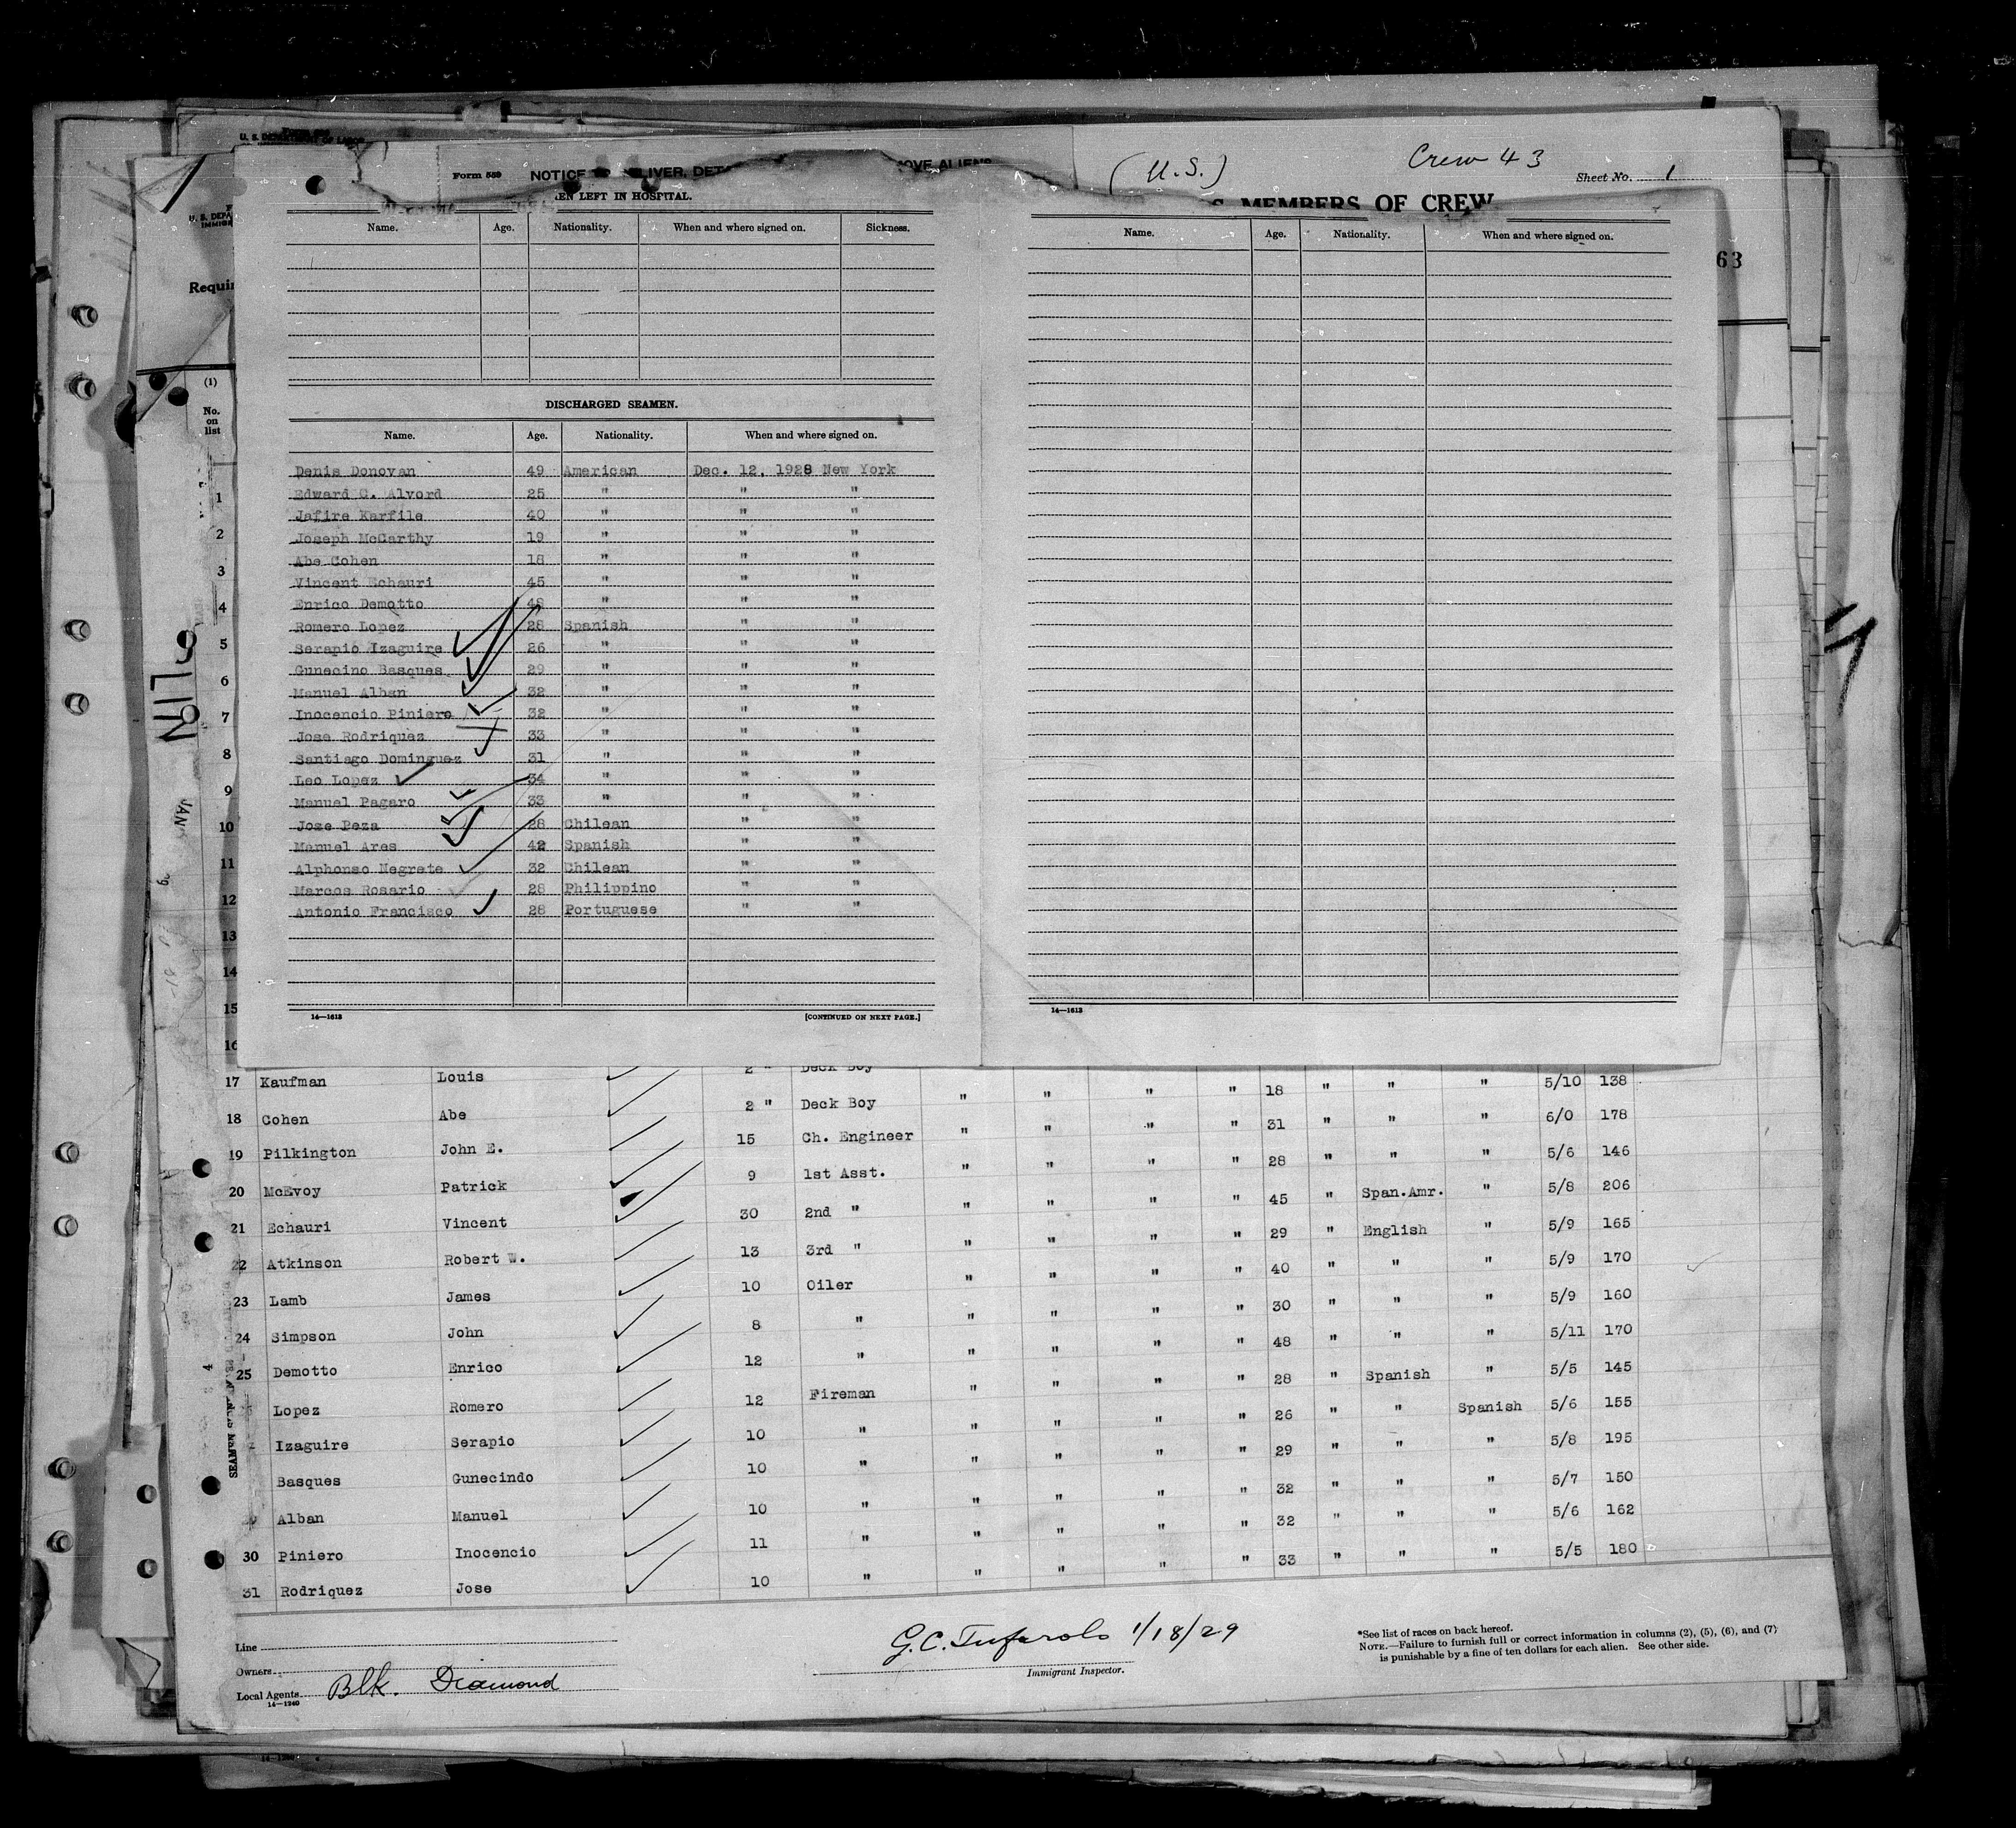 (U.S.)
Crew 43
Sheet No. 1
Form 559 NOTICE
LEFT IN HOSPITAL.
MEMBERS OF CREW
Name. Age. Nationality. When and where signed on. Sickness.
Name. Age. Nationality. When and where signed on.
63
(1)
No.
on
list
DISCHARGED SEAMEN.
Name. Age. Nationality. When and where signed on.
Denis Donovan 49 American Dec. 12, 1928 New York
Edward C. Alvord 25 " " "
Jafire Karfile 40 " " "
Joseph McCarthy 19 " " "
Abe Cohen 18 " " "
Vincent Echauri 45 " " "
Enrico Demotto 48 " " "
Romero Lopez 28 Spanish " "
Serapio Izaguire 26 " " "
Gunecino Basques 29 " " "
Manuel Alban 32 " " "
Inocencio Piniero 32 " " "
Jose Rodriquez 33 " " "
Santiago Dominguez 31 " " "
Leo Lopez 34 " " "
Manuel Pagaro 33 " " "
Jose Peza 28 Chilean " "
Manuel Ares 42 Spanish " "
Alphonso Negrete 32 Chilean " "
Marcos Rosario 28 Philippino " "
Antonio Francisco 28 Portuguese " "
14—1613 [CONTINUED ON NEXT PAGE.]
14—1613
1
2
3
4
5
6
7
8
9
10
11
12
13
14
15
16
17 Kaufman Louis 2 " Deck Boy " " " " 18 " " " 5/10 138
18 Cohen Abe 2 " Deck Boy " " " " 31 " " " 6/0 178
19 Pilkington John E. 15 Ch. Engineer " " " " 28 " " " 5/6 146
20 McEvoy Patrick 9 1st Asst. " " " " 45 " Span.Amr. " 5/8 206
21 Echauri Vincent 30 2nd " " " " " 29 " English " 5/9 165
22 Atkinson Robert W. 13 3rd " " " " " 40 " " " 5/9 170
23 Lamb James 10 Oiler " " " " 30 " " " 5/9 160
24 Simpson John 8 " " " " " 48 " " " 5/11 170
25 Demotto Enrico 12 " " " " " 28 " Spanish " 5/5 145
Lopez Romero 12 Fireman " " " " 26 " " Spanish 5/6 155
Izaguire Serapio 10 " " " " " 29 " " " 5/8 195
Basques Gunecindo 10 " " " " " 32 " " " 5/7 150
Alban Manuel 10 " " " " " 32 " " " 5/6 162
30 Piniero Inocencio 11 " " " " " 33 " " " 5/5 180
31 Rodriquez Jose 10 " " " "
Line
Owners
Local Agents Blk. Diamond
14—1240
1/18/29
Immigrant Inspector.
*See list of races on back hereof.
NOTE.—Failure to furnish full or correct information in columns (2), (5), (6), and (7)
is punishable by a fine of ten dollars for each alien. See other side.